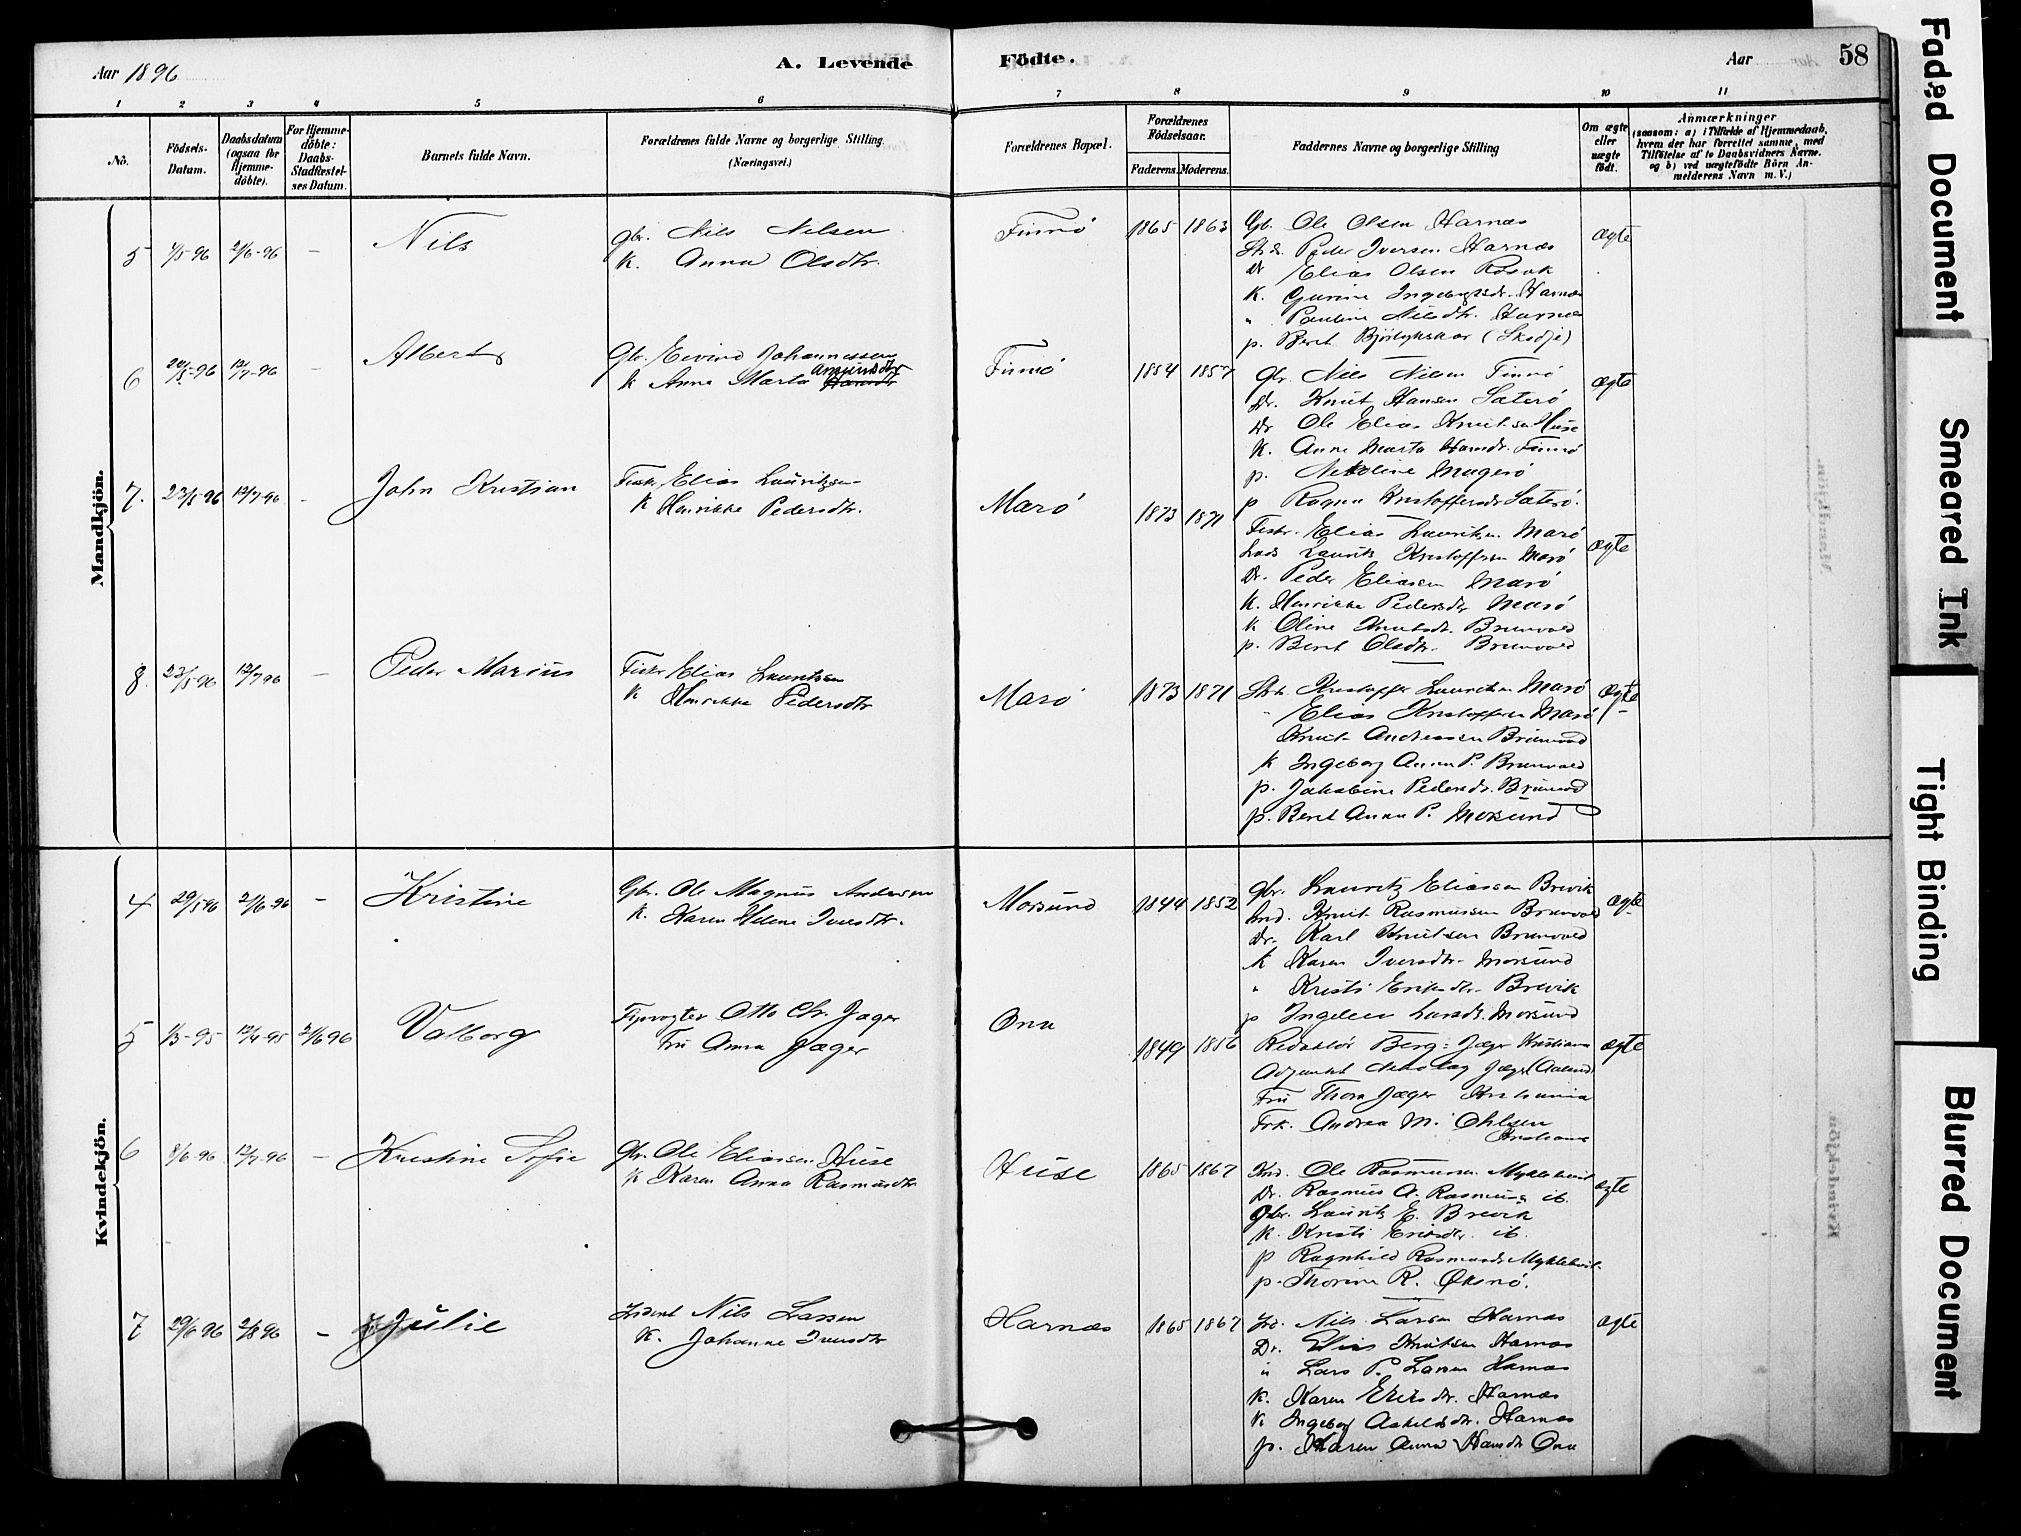 Aar 1896
A. Levende
Födte.
Aar
58
1 2 3 4 5 6 7 8 9 10 11
No.
Födsels-Datum.
Daabsdatum (ogsaa for Hjemme-döbte).
For Hjemme-döbte: Daabs-Stadfæstel-ses Datum.
Barnets fulde Navn.
Forældrenes fulde Navne og borgerlige Stilling.
(Næringsvei.)
Forældrenes Bopæl.
Forældrenes Födselsaar.
Faderens. Moderens.
Faddernes Navne og borgerlige Stilling
Om ægte eller uægte født.
Anmærkninger
(saasom: a) i Tilfælde af Hjemmedaab, hvem der har forrettet samme, med Tilföielse af to Daabsvidners Navne, og b) ved uægtefödte Börn An-melderens Navn m. V.)
Mandkjön.
5 4/5-96 21/6-96 - Nils
Gbr. Nils Nilsen
K. Anna Olsdtr.
Finnö 1865 1863
Gb. Ole Olsen Harnæs
Peder Iversen Harnæs
Dr Elias Olsen
K. Gurine Harnæs
" Pauline Nilsdtr. Harnæs
p. Berit (Skodje)
ægte
6 12/7-96 - Albert
Gbr. Eivind Johannessen
K Anne Marta Amundsdtr
Finnö 1854 1857
Gbr. Nils Nilsen Finnö
Dr. Knut Hansen Sæterö
Dr Ole Elias Knutsen Huse
K. Anne Marta Hansdr. Finnö
p. Nekoline Magerö
p Ragna Kristoffersdr Sæterö.
ægte
7. 23/5-96 12/7-96 - John Kristian
Fisk. Elias Lauritzsen
K Henrikke Pedersdtr.
Marö 1873 1871
Fiskr. Elias Lauritsen Marö
Laurits Kristoffersen Marö
Dr. Peder Eliassen Marö
K. Henrikke Pedersdtr Marö
K Oline Knutsdr. Brunvold
p. Berit Olsdtr. Brunvold
ægte
8. 23/5-96 12/7 96 - Peder Marius
Fisk Elias Lauritsen
K Henrikke Pedersdtr
Marö 1873 1871
Kristoffer Lauritsen Marö
" Elias Kristoffersen Marö
Knut Andreassen Brunvold
K Ingeborg Anna P. Brunvold
p. Jakobine Pedersdr. Brunvold
p. Berit Anna P. Morsund
ægte
Kvindekjön.
4 29/5 96 21/6-96 - Kristine
Gbr. Ole Magnus Andersen
K. Karen Helene Iversdtr.
Morsund 1844 1852
Gbr. Lauritz Eliassen Brevik
Ind. Knut Rasmussen Brunvold
Dr. Karl Knutsen Brunvold
K Karen Iversdtr. Morsund
" Kristi Eriksdtr. Brevik
p Ingeleiv Larsdr. Morsund
ægte
5 1/3-95 12/4-95 21/6 96 Valborg
Fyrvogter Otto Chr. Jæger
Fru Anna Jæger
Ona 1849 1856
Redaktör Berg-Jæger Kristiania
Adjunkt Nikolay Jæger (Aalesund)
Fru Thora Jæger Kristiania
Frk. Andrea M. Ohlsen
Kristiania
ægte
6 8/6-96 12/7-96 - Kristine Sofie
Gbr. Ole Eliassen Huse
K Karen Anna Rasmusdtr
Huse 1865 1867
Ind. Ole Rasmussen Myklebust
Dr. Rasmus A. Rasmussen ib.
Gbr. Laurits E. Brevik
K. Kristi Eriksdr. ib.
p Ragnhild Rasmusdr Myklebust
p. Thorine R. Öksnö.
ægte
7 29/6 96 2/8 96 - Julie
Inderst Nils Larsen
K. Johanne Iversdtr
Harnæs 1865 1867
Ind. Nils Larsen Harnæs
Dr. Elias Knutsen Harnæs
" Lars P. Larsen Harnæs
K. Karen Eriksdtr. Harnæs
K Ingeborg Askelsdtr. Harnæs
p. Karen Anna Hansdtr Ona
ægte
Faded Document
Smeared Ink
Tight Binding
Blurred Document